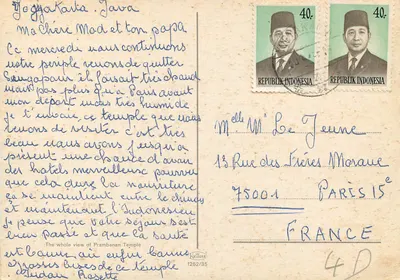 Yogyakarta. Java
Ma Chère Mad et ton papa
Ce mercredi nous continuons
notre périple venons de quitter
Singapour il faisait très chaud
mais pas plus qu'à Paris avant
mon départ mais très humide
je t'envoie, ce temple que nous
venons de visiter c'est très
beau nous avons jusqu'à
présent une chance d'avoir
des hotels merveilleux pourvu
que cela dure la nourriture
ça se maintient entre le chinois
et maintenant l'Indonésien
je pense que votre séjour s'est
bien passé et que la santé
The whole view of Prambanan Temple
est bonne, au
grosses bises de ce temple
Rosette
40,-
REPUBLIK INDONESIA
40,-
REPUBLIK INDONESIA
Melle M Le Jeune
13 Rue des Frères Morane
75001 PARIS 15e
FRANCE
4D